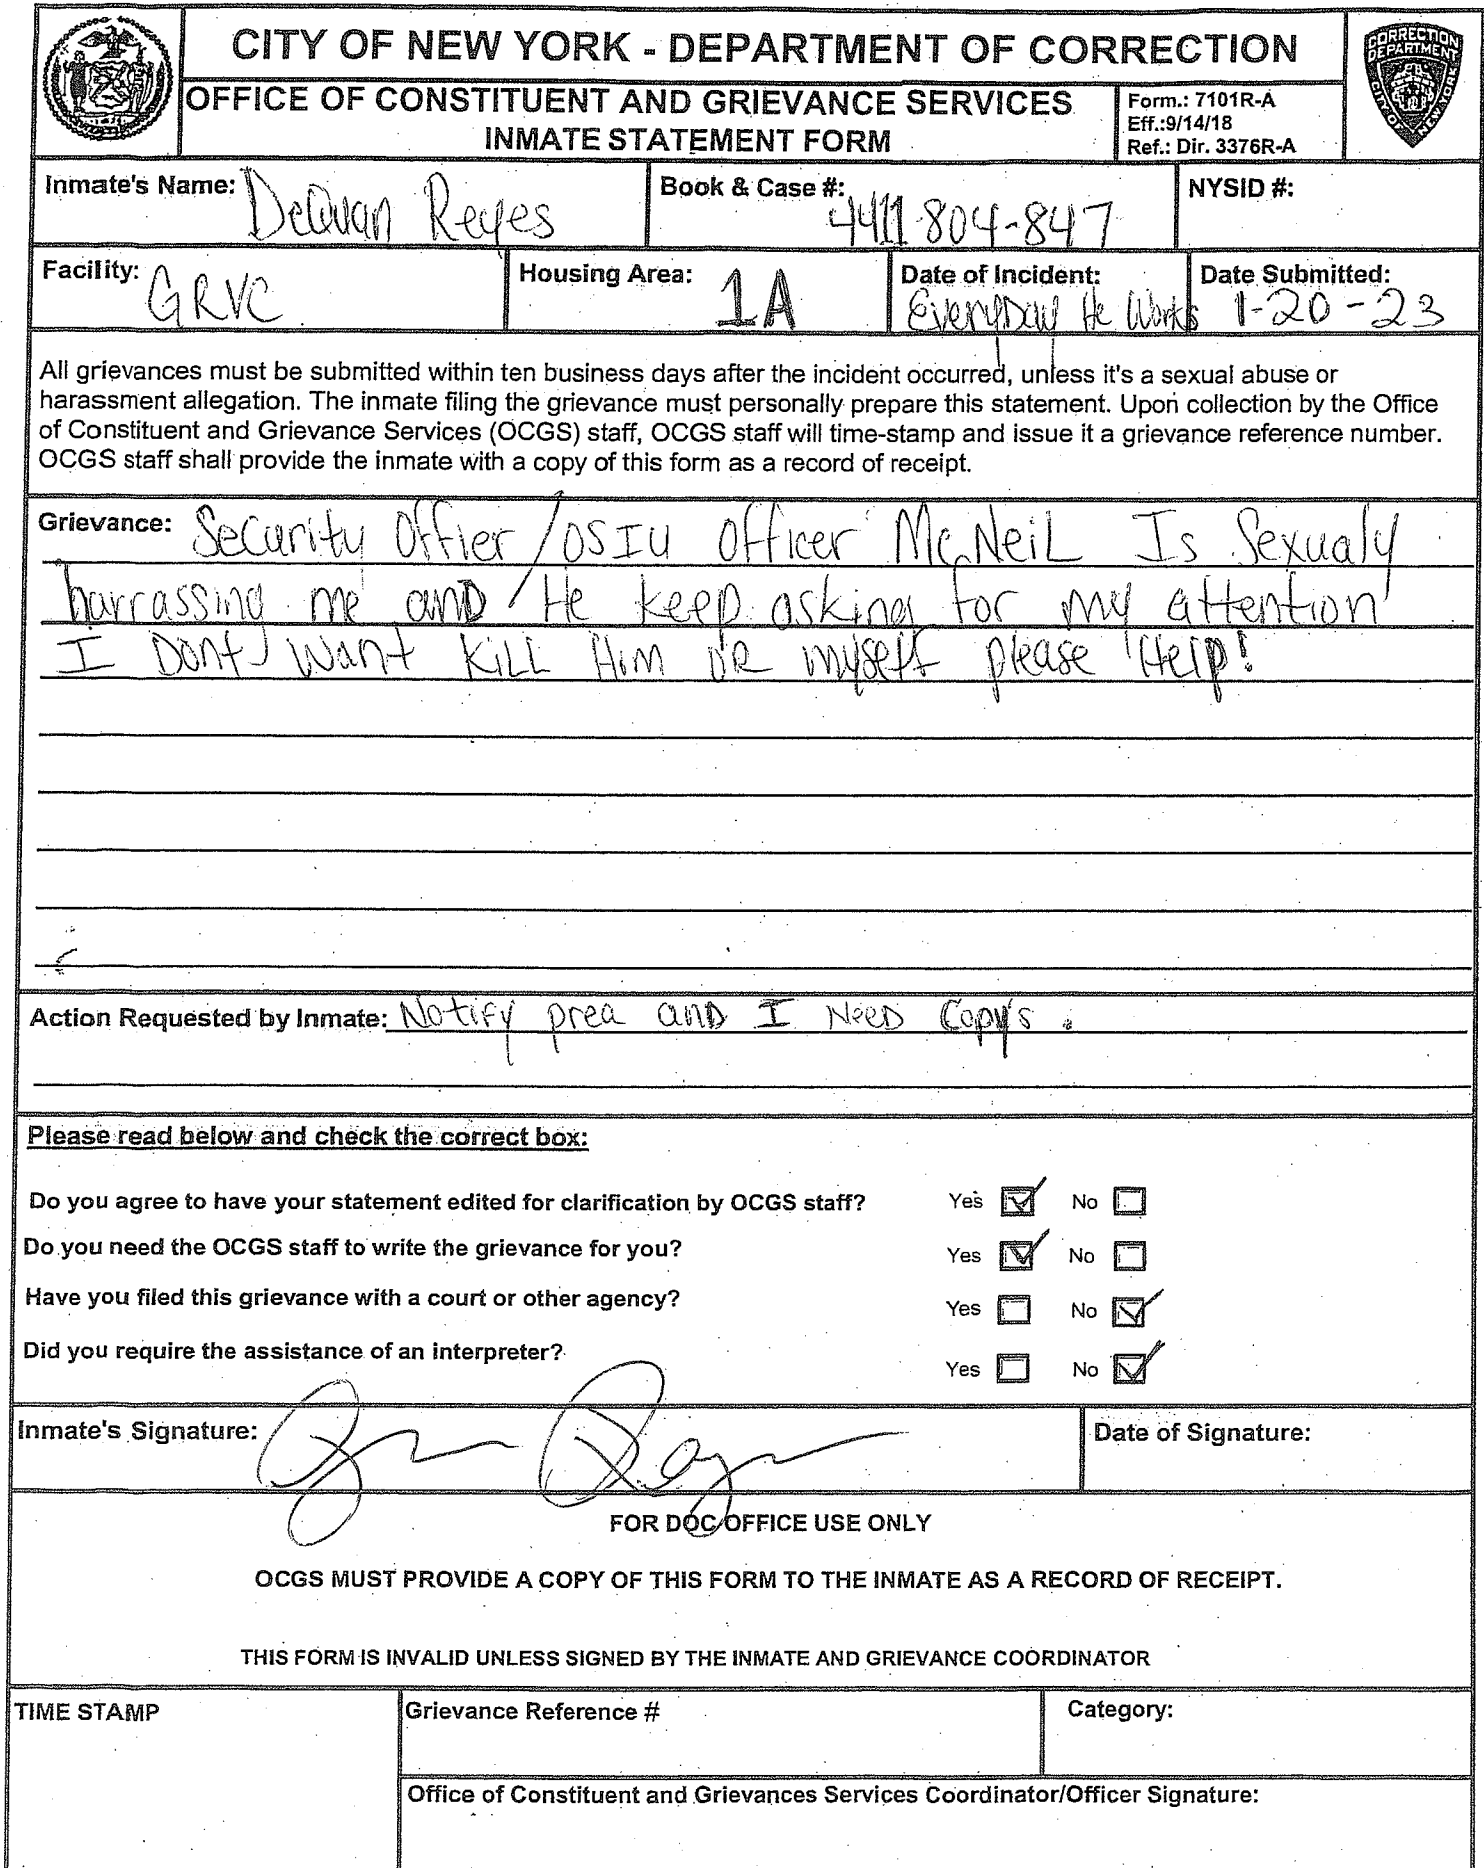 CITY OF NEW YORK - DEPARTMENT OF CORRECTION
OFFICE OF CONSTITUENT AND GRIEVANCE SERVICES
INMATE STATEMENT FORM
Form.: 7101R-A
Eff.:9/14/18
Ref.: Dir. 3376R-A
CORRECTION
DEPARTMENT
CITY OF NEW YORK
Inmate's Name: DeQuan Reyes
Book & Case #: 4411804-847
NYSID #:
Facility: GRVC
Housing Area: 1A
Date of Incident: EveryDay He Works
Date Submitted: 1-20-23
All grievances must be submitted within ten business days after the incident occurred, unless it's a sexual abuse or
harassment allegation. The inmate filing the grievance must personally prepare this statement. Upon collection by the Office
of Constituent and Grievance Services (OCGS) staff, OCGS staff will time-stamp and issue it a grievance reference number.
OCGS staff shall provide the inmate with a copy of this form as a record of receipt.
Grievance: Security Offier/OSIU Officer McNeiL Is Sexualy
harrassing me and He keep asking for my attention
I Dont Want KiLL Him OR myself please Help!
Action Requested by Inmate: Notify prea and I NeeD Copy's.
Please read below and check the correct box:
Do you agree to have your statement edited for clarification by OCGS staff? Yes ☑ No ☐
Do you need the OCGS staff to write the grievance for you? Yes ☑ No ☐
Have you filed this grievance with a court or other agency? Yes ☐ No ☑
Did you require the assistance of an interpreter? Yes ☐ No ☑
Inmate's Signature:
Date of Signature:
FOR DOC OFFICE USE ONLY
OCGS MUST PROVIDE A COPY OF THIS FORM TO THE INMATE AS A RECORD OF RECEIPT.
THIS FORM IS INVALID UNLESS SIGNED BY THE INMATE AND GRIEVANCE COORDINATOR
TIME STAMP
Grievance Reference #
Category:
Office of Constituent and Grievances Services Coordinator/Officer Signature: